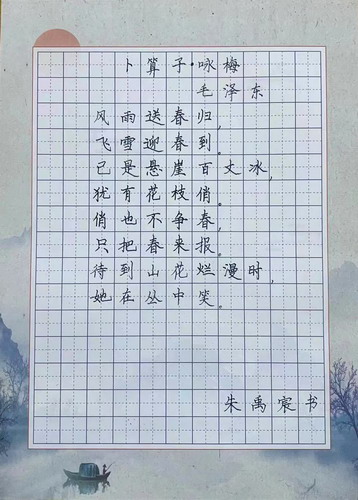 卜算子·咏梅
毛泽东
风雨送春归，
飞雪迎春到。
已是悬崖百丈冰，
犹有花枝俏。
俏也不争春，
只把春来报。
待到山花烂漫时，
她在丛中笑。
朱禹宸书